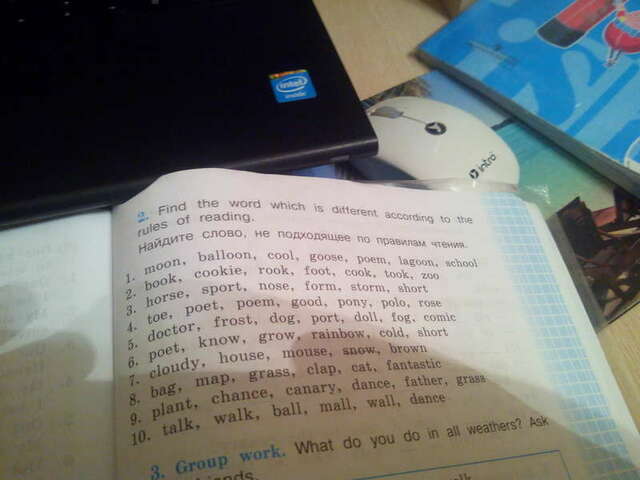 intel
inside
intro
2. Find the word which is different according to the
rules of reading.
Найдите слово, не подходящее по правилам чтения.
1. moon, balloon, cool, goose, poem, lagoon, school
2. book, cookie, rook, foot, cook, took, zoo
3. horse, sport, nose, form, storm, short
4. toe, poet, poem, good, pony, polo, rose
5. doctor, frost, dog, port, doll, fog, comic
6. poet, know, grow, rainbow, cold, short
7. cloudy, house, mouse, snow, brown
8. bag, map, grass, clap, cat, fantastic
9. plant, chance, canary, dance, father, grass
10. talk, walk, ball, mall, wall, dance
3. Group work. What do you do in all weathers? Ask
friends.